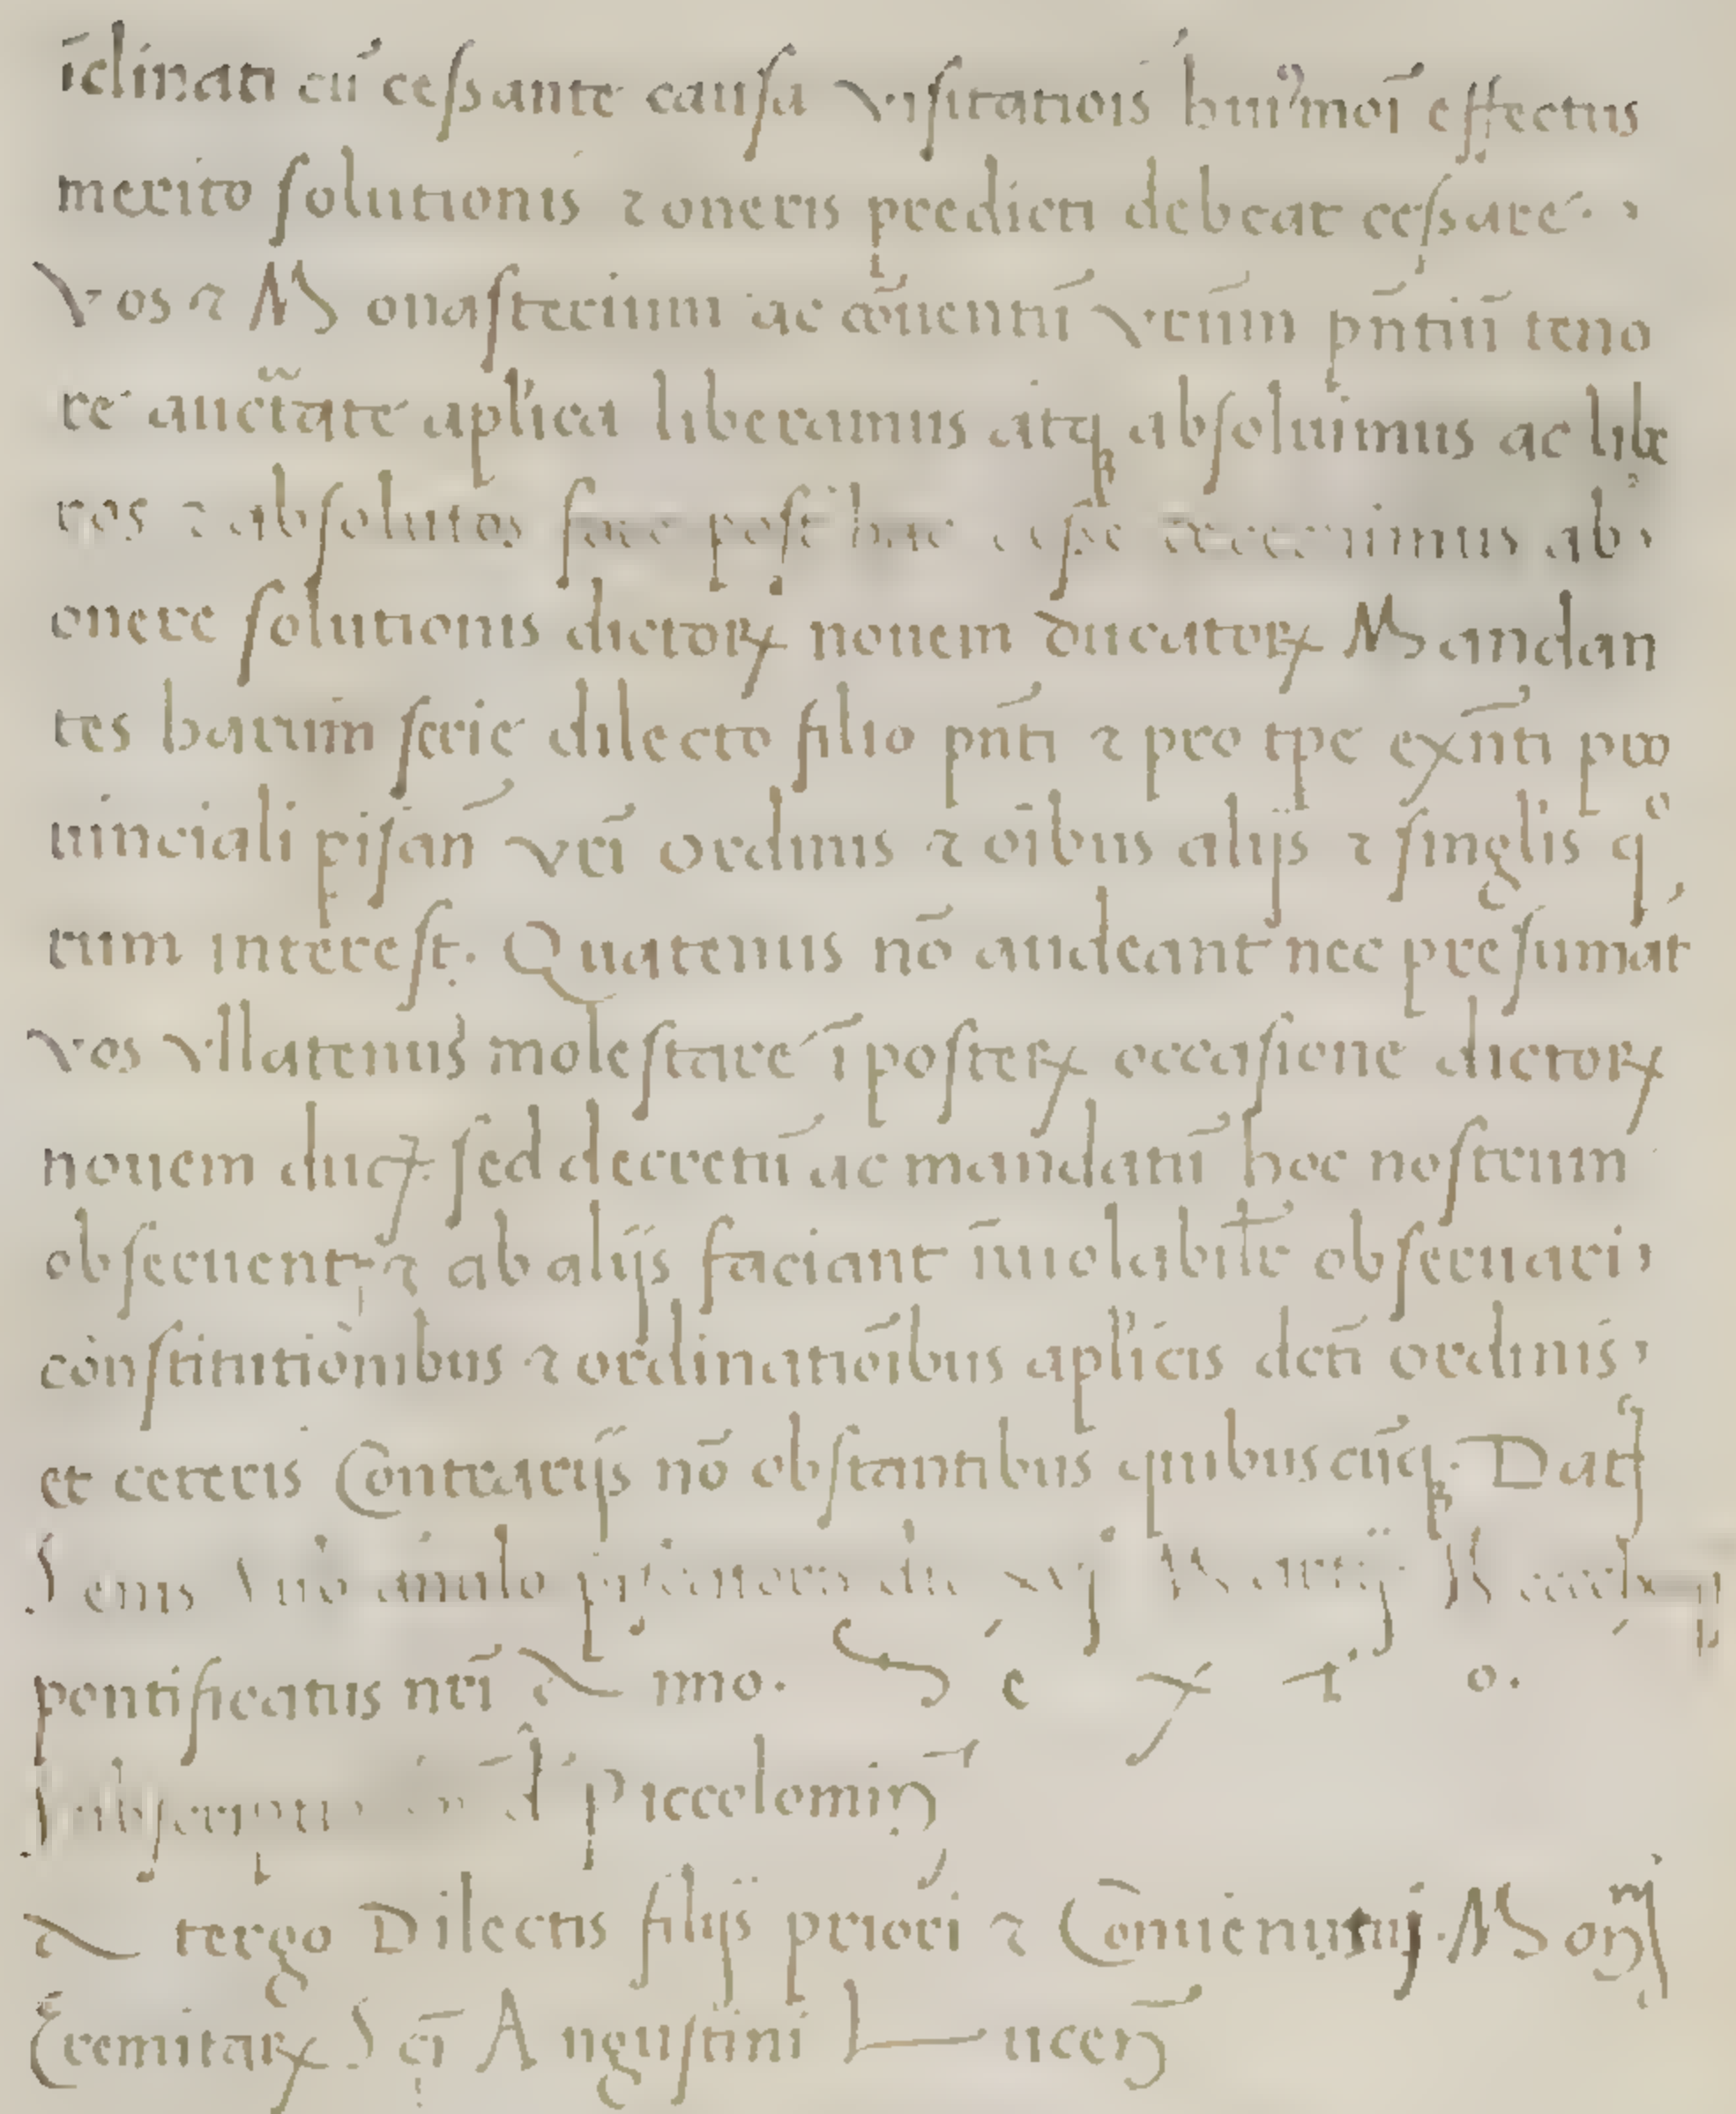 īclinati cū cessante causa visitatiois huiꝰmoī effectus
merito solutionis ⁊ oneris predicti debeat cessare. ,
Vos ⁊ Monasterium ac cōuentū vr̄um pn̄tiū teno
re auct̄ate apl'ica liberamus atqꝫ absoluimus ac libe
ros ⁊ absolutos fore post hac esse decernimus ab,
onere solutionis dictoꝝ nouem ducatoꝝ Mandan
tes harum serie dilecto filio pn̄ti ⁊ pro tpe exn̄ti pro
uinciali pisan̄ vr̄i ordinis ⁊ oībus alijs ⁊ singl'is qͦ
rum interest. Quatenus nō audeant nec presumāt
vos vllatenus molestare ī posteꝝ occasione dictoꝝ
nouem ducꝝ. sed decretū ac mandatū hoc nostrum
obseruent ⁊ ab alijs faciant īuiolabil'r obseruari,
constitutionibus ⁊ ordinatiōibus apl'icis dctī ordinis,
et ceteris Contrarijs nō obstantibus quibuscūqꝫ. Datꝭ
Senis Sub anulo die xvj Martij.
pontificatus nr̄i A nno. S e x t o.
d Piccolomin̄
A tergo Dilectis filijs priori ⁊ Conuentuj. Mon̄rij
Eremitaꝝ Scī Augustini Lucen̄